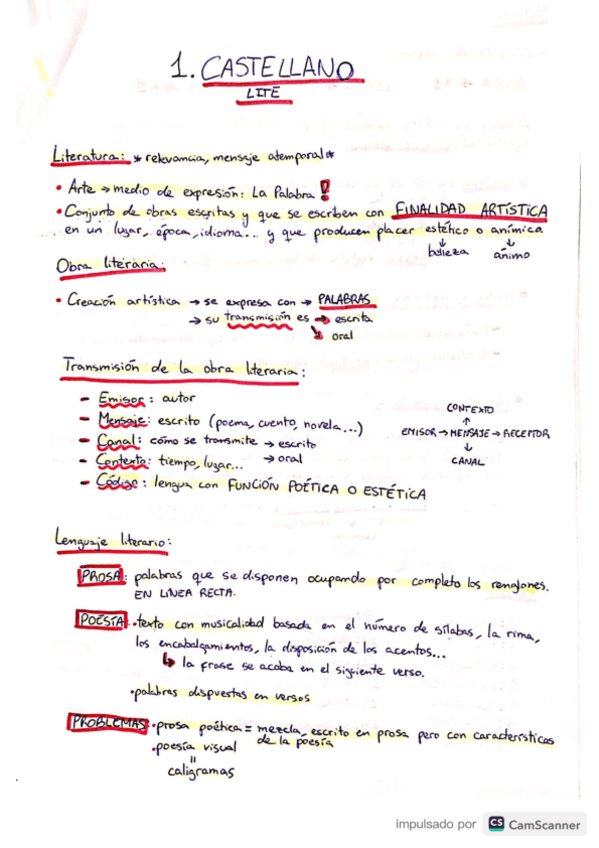 1. CASTELLANO
LITE
Literatura: * relevancia, mensaje atemporal *
• Arte → medio de expresión: La Palabra !
• Conjunto de obras escritas y que se escriben con FINALIDAD ARTÍSTICA
en un lugar, época, idioma... y que producen placer estético o anímica
↓ belleza ↓ ánimo
Obra literaria:
• Creación artística → se expresa con → PALABRAS
→ su transmisión es → escrita
↘ oral
Transmisión de la obra literaria:
- Emisor: autor
- Mensaje: escrito (poema, cuento, novela...)
- Canal: cómo se transmite → escrito
→ oral
- Contexto: tiempo, lugar...
- Código: lengua con FUNCIÓN POÉTICA O ESTÉTICA
CONTEXTO
↑
EMISOR → MENSAJE → RECEPTOR
↓
CANAL
Lenguaje literario:
PROSA: palabras que se disponen ocupando por completo los renglones.
EN LÍNEA RECTA.
POESÍA: • texto con musicalidad basada en el número de sílabas, la rima,
los encabalgamientos, la disposición de los acentos...
↳ la frase se acaba en el siguiente verso.
• palabras dispuestas en versos
PROBLEMAS: • prosa poética = mezcla, escrito en prosa pero con características
de la poesía
• poesía visual
=
caligramas
impulsado por CS CamScanner